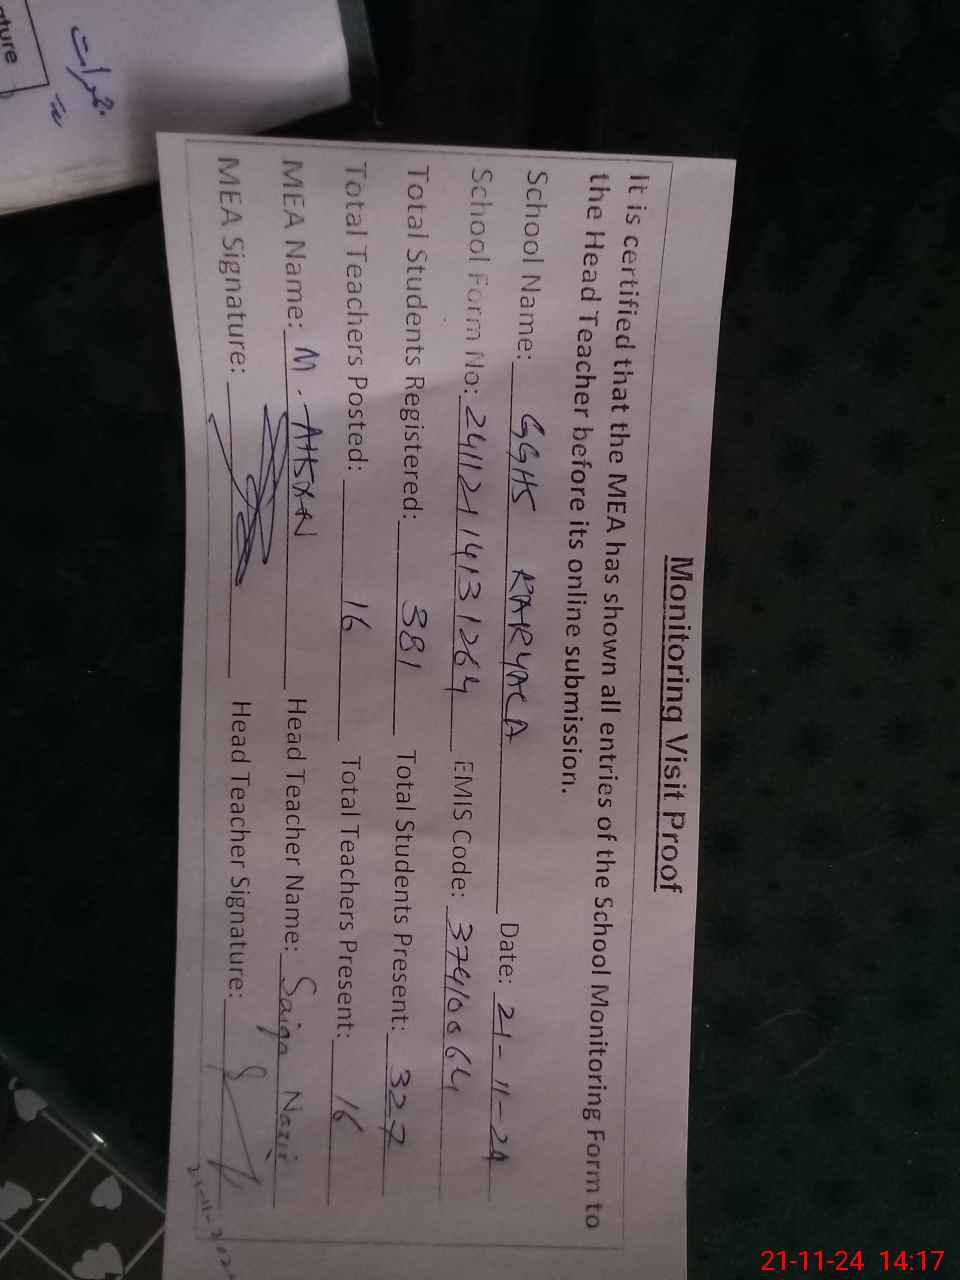 Monitoring Visit Proof
It is certified that the MEA has shown all entries of the School Monitoring Form to
the Head Teacher before its online submission.
School Name: GGHS KARYALA Date: 21-11-24
School Form No: 24112114131264 EMIS Code: 37410064
Total Students Registered: 381 Total Students Present: 327
Total Teachers Posted: 16 Total Teachers Present: 16
MEA Name: M. AHSAN Head Teacher Name: Saiqa Nazir
MEA Signature: Head Teacher Signature:
21-11-24 14:17